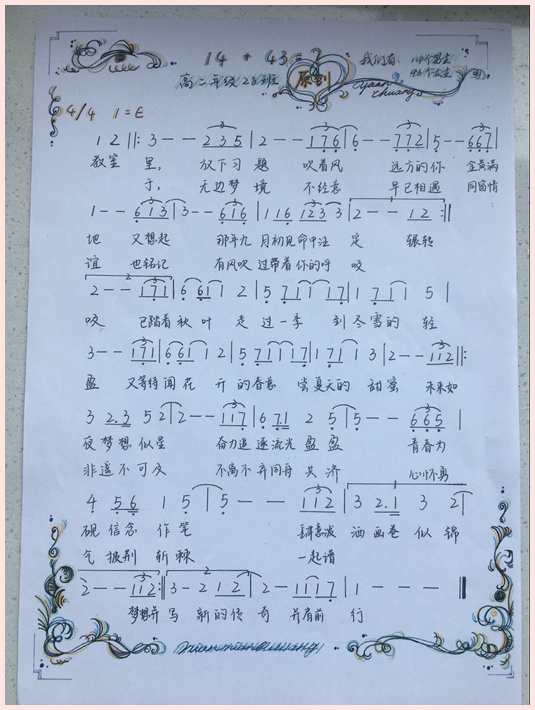 14 + 43 = ?
我们有: 14个男生
43个女生
高二年级28班
原创
yuan chuang
4/4 1=E
1 2 ||: 3 - - 2 3 5 | 2 - - 1 7 6 | 6 - - 7 7 2 | 5 - - 6 6 7 |
教室 里, 放下习 题 吹着风 远方的你 金黄满
子, 无边梦 境 不经意 早已相遇 同窗情
1 - - 6 1 3 | 3 - - 6 1 6 | 1 1 6 1 2 3 3 | 2 - - 1 2 :||
地 又想起 那年九 月初见命中注 定 辗转
谊 也铭记 有风吹过带着你的呼 咬
2 - - 1 7 1 | 6 6 1 1 2 | 5 7 1 1 1 7 | 1 7 1 1 5 |
咬 已踏着秋 叶 走 过一季 到冬雪的 轻
3 - - 1 7 1 | 6 6 1 1 2 | 5 7 1 1 1 7 | 1 7 1 1 3 | 2 - - 1 1 2 ||:
盈 又等待闻花 开 的春意 尝夏天的 甜蜜 未来如
3 2.3 5 2 | 2 - - 1 1 7 | 6 7.1 2 5 | 5 - - 6 6 5 |
夜梦想似星 奋力追逐流光盈盈 青春为
非遥不可及 不离不弃同舟共济
4 5 6 1 5 | 5 - - 1 1 2 | 3 2.1 3 2 |
砚信念 作笔 肆意泼 洒画卷 似锦
气 披荆 斩棘 一起谱
2 - - 1 1 2 :|| 3 - 2 1 2 | 2 - 1 1 1 7 | 1 - - - ||
梦想开马 新的传 奇 并肩前 行